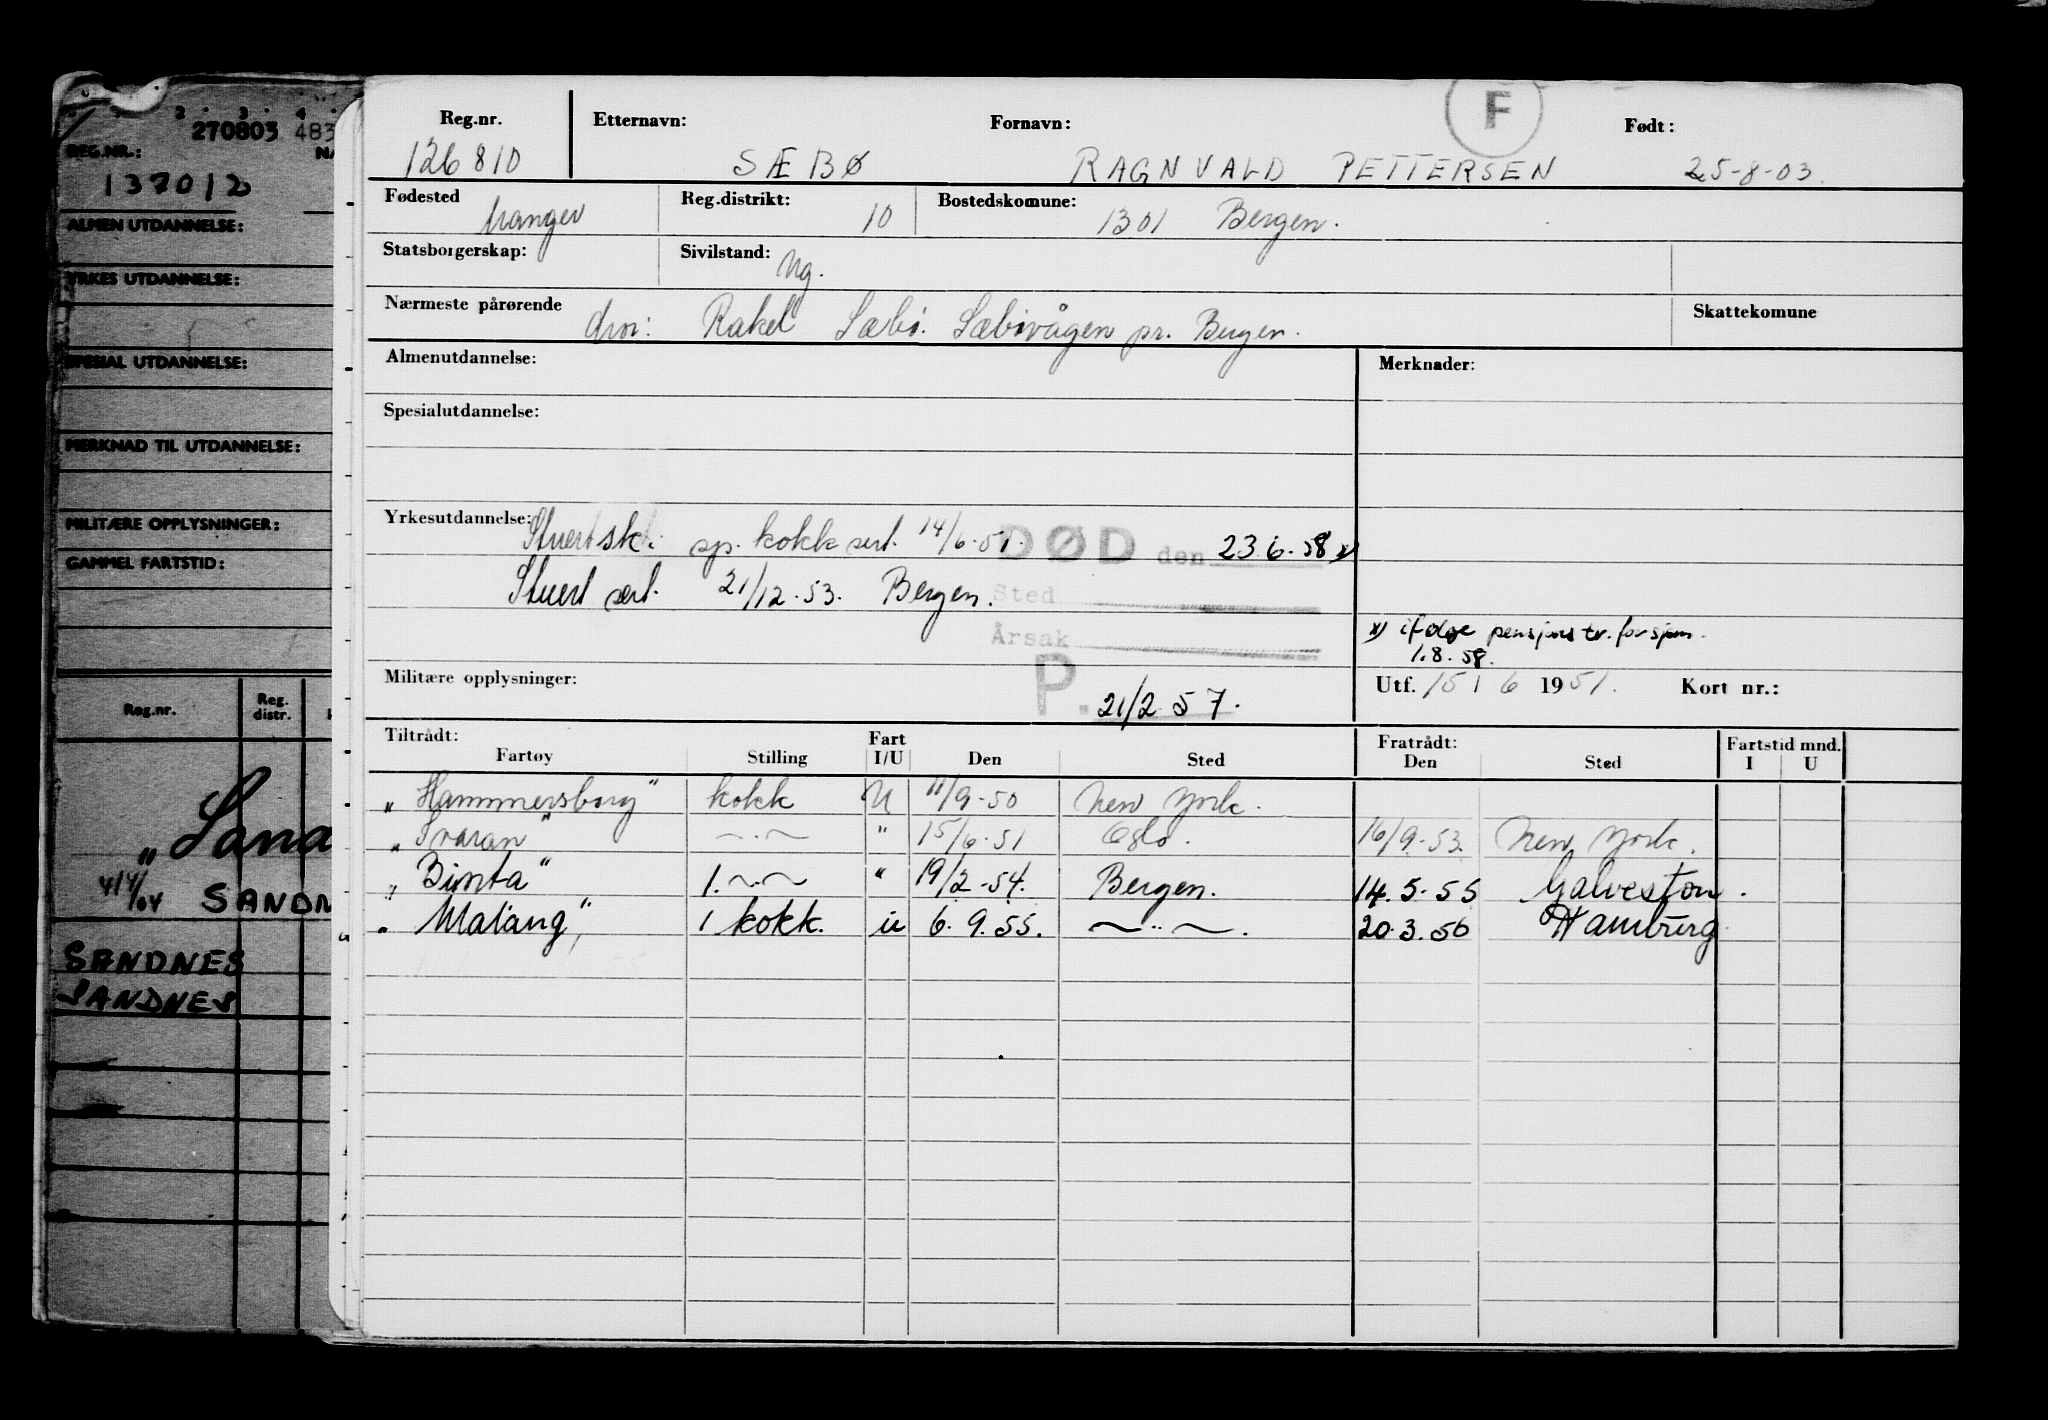 2 3 4
270803 483
REG.NR.: NA
137012
ALMEN UTDANNELSE:
YRKES UTDANNELSE:
SPESIAL UTDANNELSE:
MERKNAD TIL UTDANNELSE:
MILITÆRE OPPLYSNINGER:
GAMMEL FARTSTID:
Reg.nr. Reg. distr.
„Sand
SANDN
SANDNES
SANDNES
F
Reg.nr. Etternavn: Fornavn: Født:
126810 SÆBØ RAGNVALD PETTERSEN 25-8-03.
Fødested Manger Reg.distrikt: 10 Bostedskomune: 1301 Bergen.
Statsborgerskap: Sivilstand: Ug.
Nærmeste pårørende Skattekomune
mor: Rakel Sæbø. Sæbøvågen pr. Bergen.
Almenutdannelse: Merknader:
Spesialutdannelse:
Yrkesutdannelse: Stuertsk. sp. kokk sert. 14/6.51. DØD den 23 6. 58 x)
Stuert sert. 21/12.53. Bergen. Sted
Årsak
x) ifølge pensjonstr. for sjøm.
1.8.58.
Militære opplysninger: P. 21/2.57. Utf. 15 / 6 1951. Kort nr.:
Tiltrådt: Fart Fratrådt: Fartstid mnd.
Fartøy Stilling I/U Den Sted Den Sted I U
„Hammersborg" kokk U 11/9-50 New York.
„Svaran" —·— " 15/6-51 Oslo. 16/9-53. New York.
„Binta" 1.—·— " 19/2-54. Bergen. 14.5-55 Galveston.
„Malang", 1 kokk. u 6.9.55. —··—. 20.3.56 Hamburg